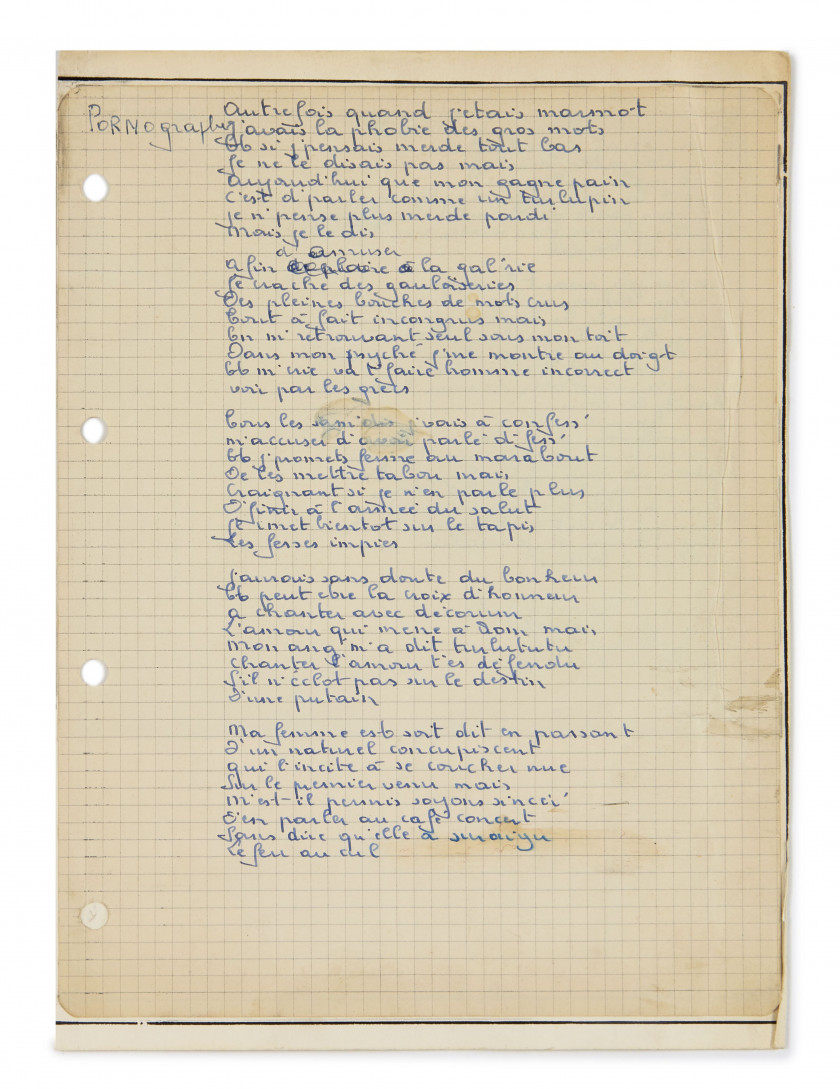 PORNographe
Autrefois quand j'etais marmot
J'avais la phobie des gros mots
Et si j'pensais merde tout bas
Je ne le disais pas mais
Aujourd'hui que mon gagne pain
C'est d'parler comme un turlupin
je n'pense plus merde pardi
Mais je le dis
d'amuser
Afin de plaire à la gal'rie
Je crache des gauloiseries
Des pleines bouches de mots crus
Tout à fait incongrus mais
En m'retrouvant seul sous mon toit
Dans mon psyché j'me montre au doigt
Et m'crie va t'faire homme incorrect
voir par les grecs
Tous les sam'dis j'vais à confess'
m'accuser d'avoir parlé d'fess'
Et j'promets ferme au marabout
De les mettre tabou mais
Craignant si je n'en parle plus
D'finir à l'armée du salut
Je r'met bientot sur le tapis
Les fesses impies
J'aurais sans doute du bonheur
Et peut etre la croix d'honneur
a chanter avec décorum
L'amour qui mene à Rom mais
Mon ang' m'a dit turlututu
Chanter l'amour t'es défendu
S'il n'éclot pas sur le destin
D'une putain
Ma femme est soit dit en passant
D'un naturel concupiscent
qui l'incite à se coucher nue
Sur le premier venu mais
M'est-il permis soyons sincèr'
D'en parler au café concert
Sans dire qu'elle a suraigu
Le feu au cul